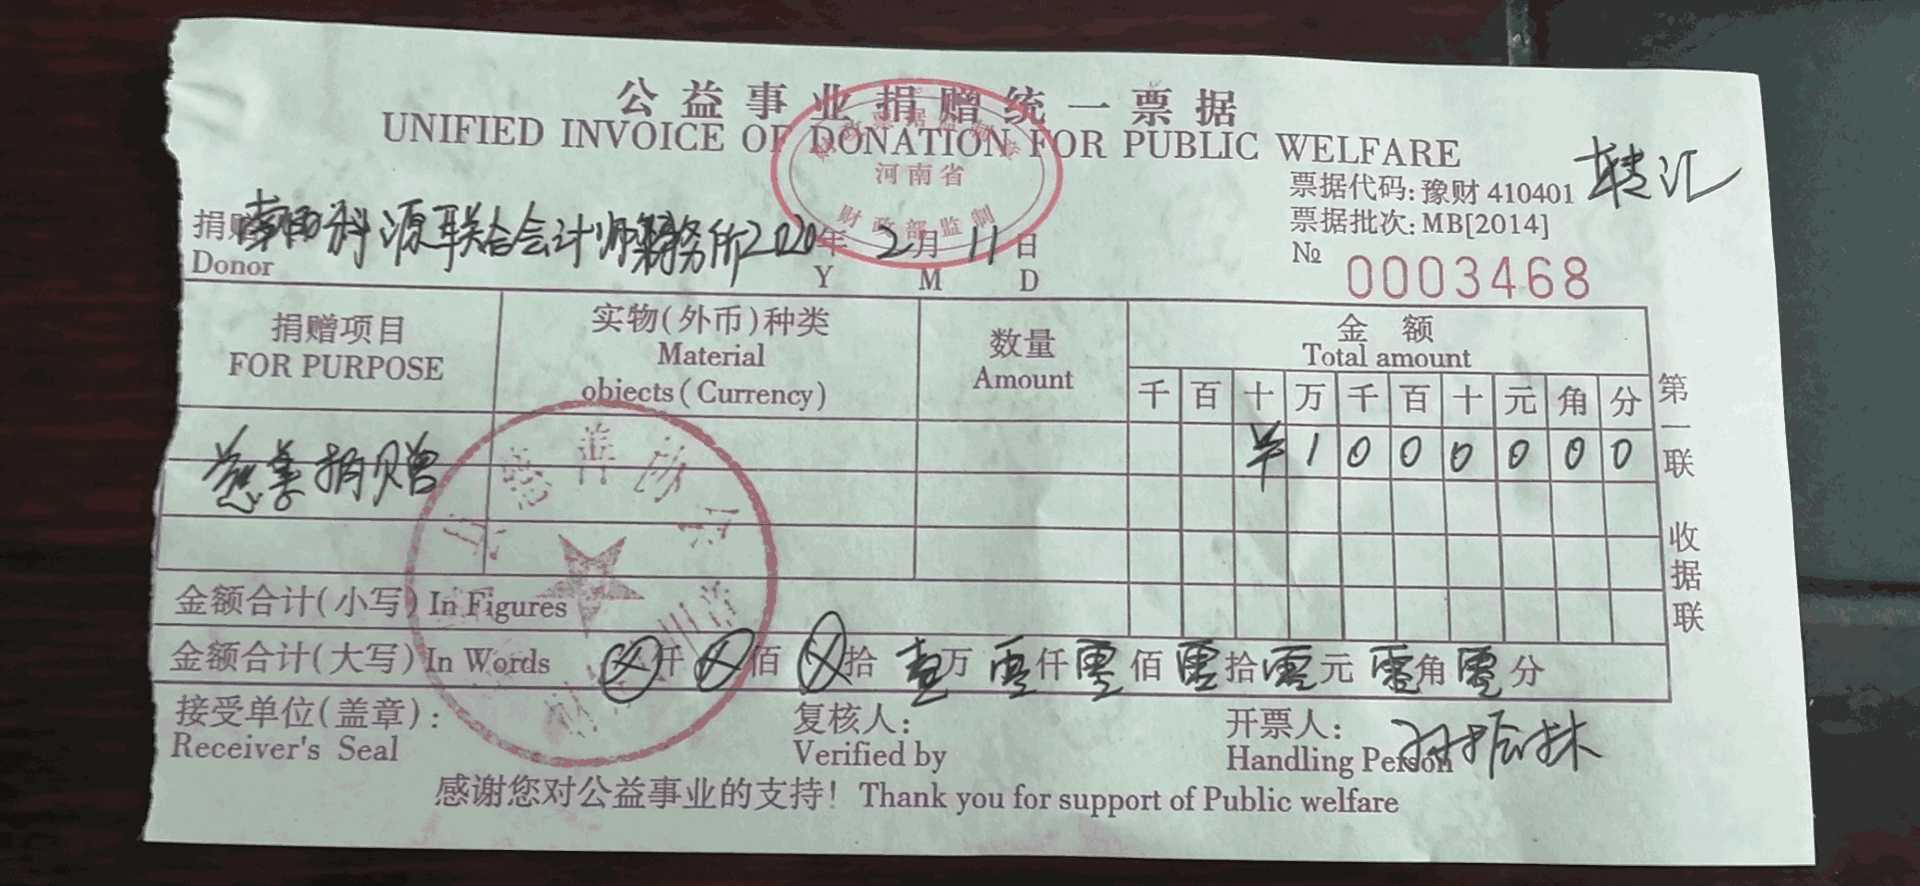 公益事业捐赠统一票据
UNIFIED INVOICE OF DONATION FOR PUBLIC WELFARE
河南省
财政部监制
转汇
票据代码:豫财 410401
票据批次:MB[2014]
№ 0003468
捐 科源联合会计师事务所 2020年 2月 11日
Donor Y M D
捐赠项目 实物(外币)种类 数量 金 额
FOR PURPOSE Material objects(Currency) Amount Total amount
千 百 十 万 千 百 十 元 角 分
慈善捐赠 1 0 0 0 0 0 0
金额合计(小写) In Figures
金额合计(大写) In Words ⊗仟⊗佰⊗拾 壹万 零仟 零佰 零拾 零元 零角 零分
接受单位(盖章): 复核人: 开票人:
Receiver's Seal Verified by Handling Person
感谢您对公益事业的支持! Thank you for support of Public welfare
第一联 收据联
慈善协会